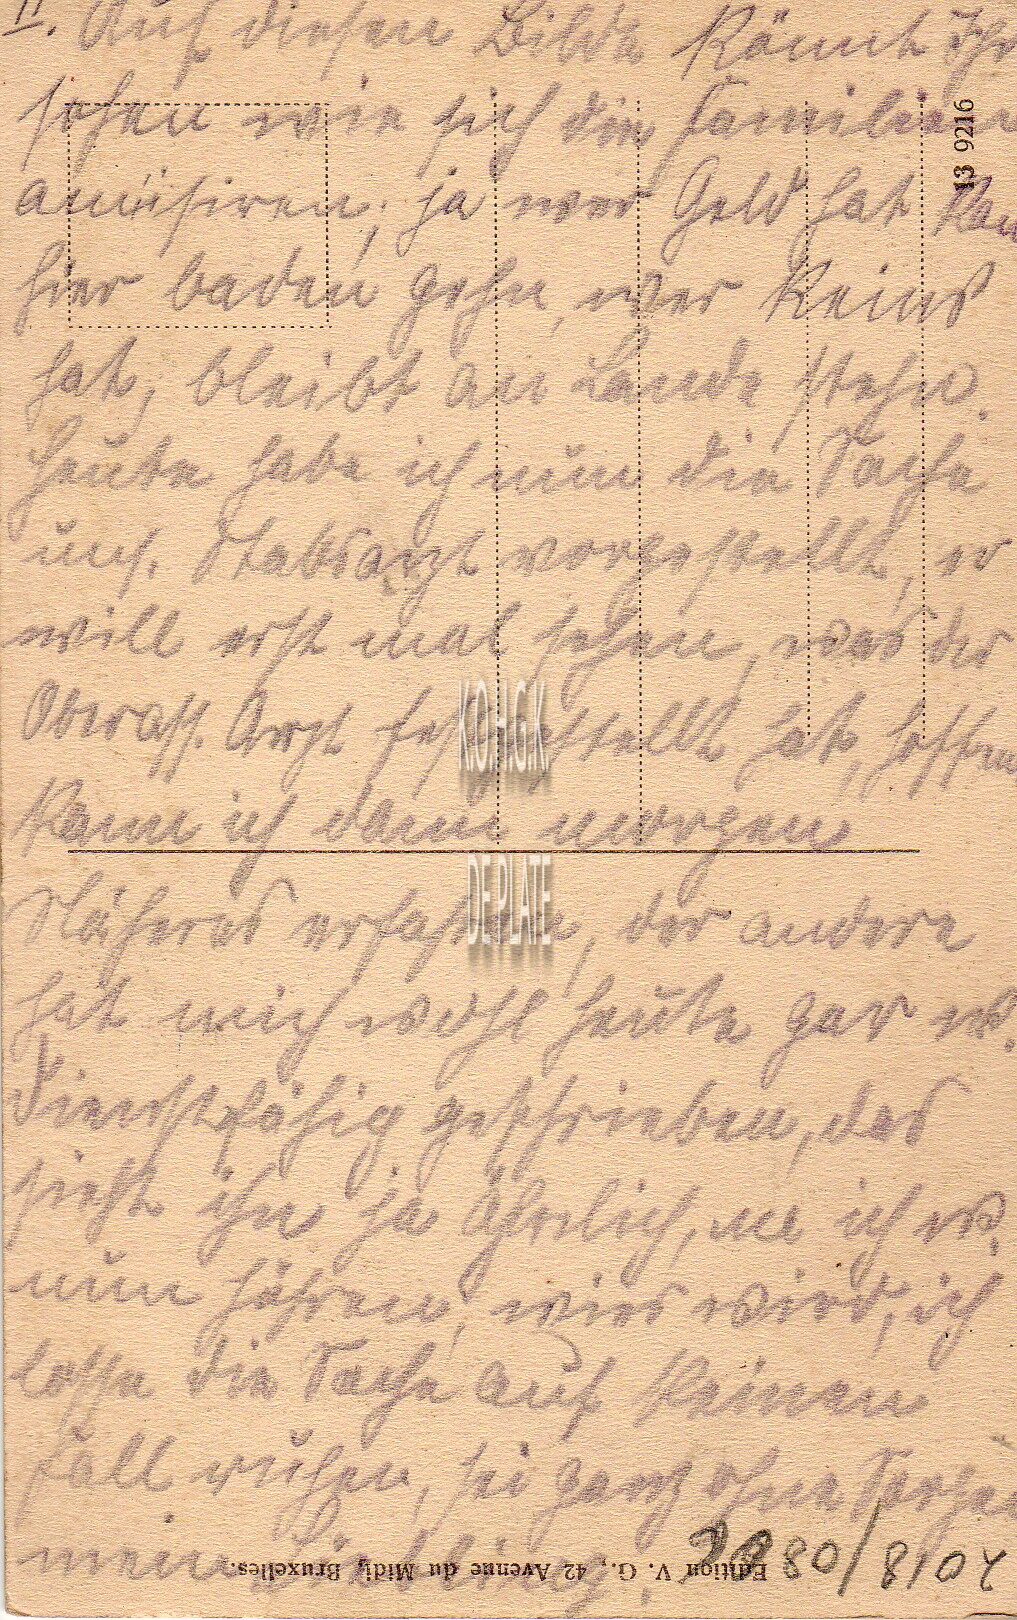 II. Auf diesen Bilde könnt Ihr
sehen wie sich die Familien
amüsiren, ja wer Geld hat kan
hier baden gehn, wer keins
hat, bleibt an Lande stehn.
Heute habe ich nun die Sache
uns. Stabsarzt vorgestellt, er
will erst mal sehen, was der
Oberass. Arzt festgestellt hat, hoffen
kann ich dann morgen
Näheres erfahren, der andere
hat mich wohl heute gar
dienstfähig geschrieben, das
sieht ihn ja ähnlich, na ich
nun hören, wies wird, ich
lasse die Sache auf keinen
Fall ruhen, sei ganz ohne Sorge
mein Liebling.
13 9216
K.O.H.G.K.
DE PLATE
Edition V. G., 42 Avenue du Midi, Bruxelles.
2018/080